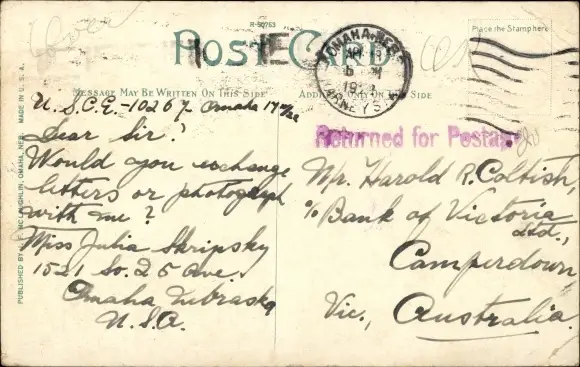 R-50753
POST CARD
Place the Stamp here
MESSAGE MAY BE WRITTEN ON THIS SIDE
ADDRESS ONLY ON THIS SIDE
OMAHA, NEBR.
Returned for Postage
U.S.C.E.-10267. Omaha
Dear Sir:
Would you exchange
letters or photograph
with me?
Miss Julia Skripsky
1521 So. 25 Ave.
Omaha Nebraska
U.S.A.
Mr. Harold R. Coltish,
c/o Bank of Victoria
Ltd.,
Camperdown
Vic., Australia.
MADE IN U.S.A.
McLAUGHLIN, OMAHA, NEB.
PUBLISHED BY